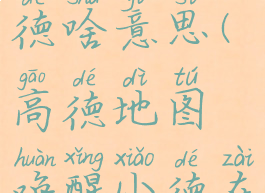 德啥意思(
gāo dé dì tú
高德地图
huàn xǐng xiǎo dé zài
唤醒小德在